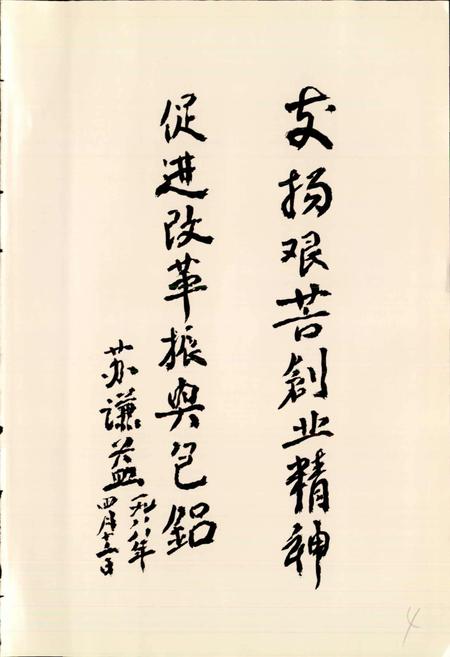 发扬艰苦创业精神
促进改革振兴包铝
苏谦益
一九八八年
四月十三日
4